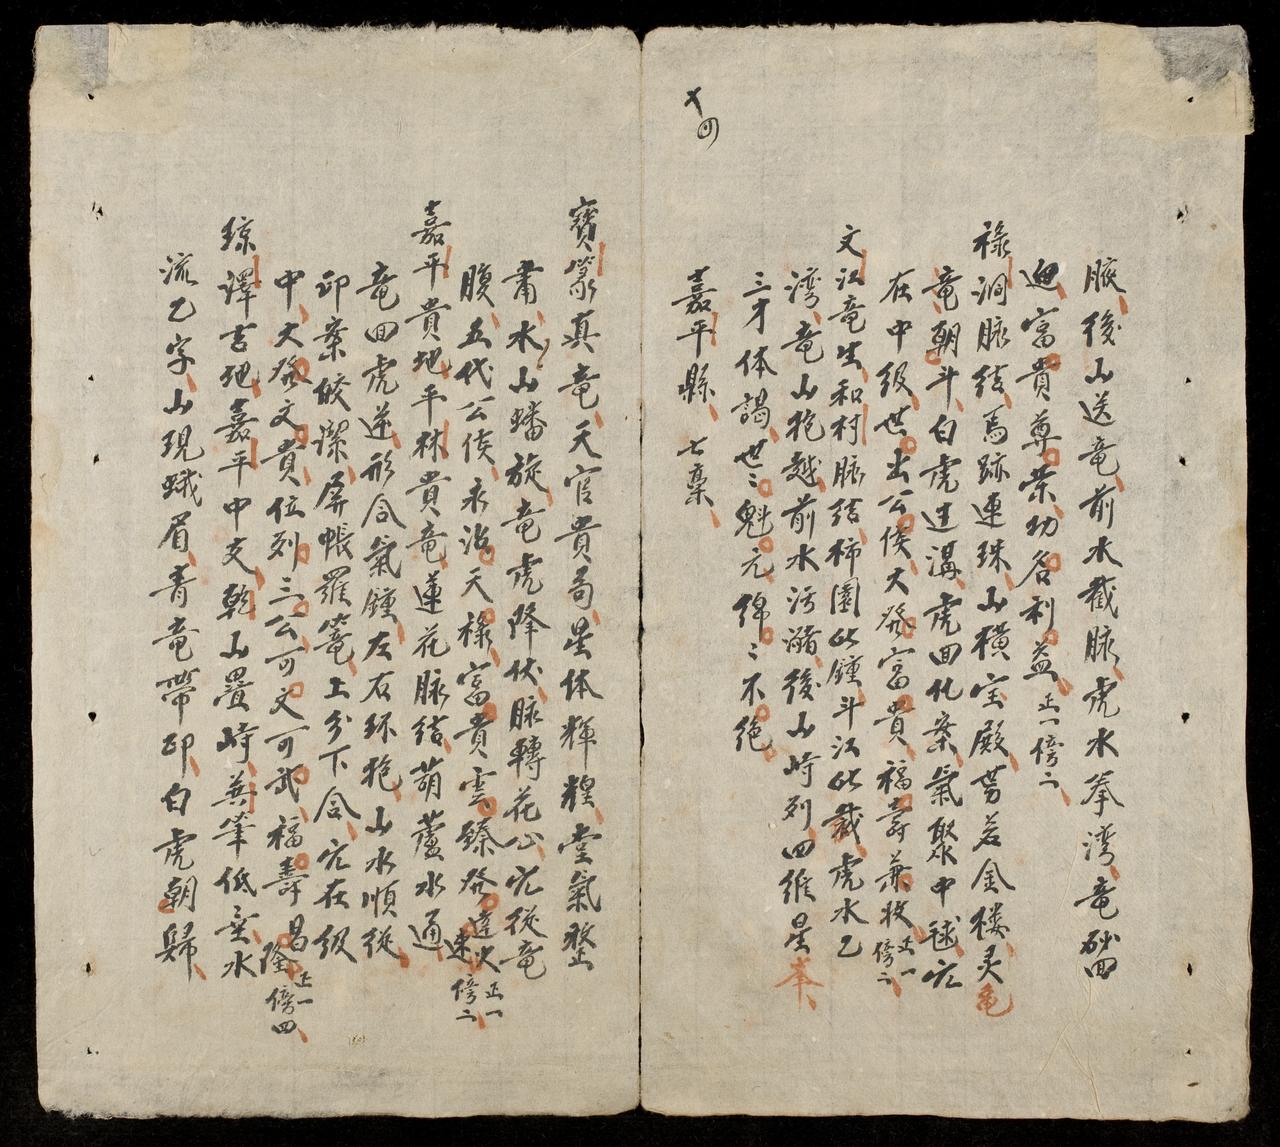 十四
腋後山送竜前水截脉虎水拳湾竜砂回
迎富貴尊荣功名利益正一傍二
禄洞脉结焉跡連珠山横宝殿势若金楼灵龟
竜朝斗白虎过溝虎回化案氣聚中毬穴
在中级世出公侯大發富貴福寿兼收正一傍二
文江竜生和村脉结柿園此鍾斗江此截虎水乙
湾竜山抱越前水污潴後山峙列四維星峯
三才体謁世〻魁元綿〻不绝
嘉平縣 七稾
寶篆真竜天官貴局星体輝煌堂氣整
肅水山蟠旋竜虎降伏脉轉花心穴從竜
腹五代公侯永治天禄富貴雲臻發達速次正一傍二
嘉平貴地平林貴竜蓮花脉结葫蘆水通
竜回虎逆形合氣鍾左右环抱山水順從
印案皎潔屏帳羅篭上分下合穴在级
中大發文貴位列三公可文可武福寿昌隆正一傍四
琼譯吉地嘉平中支乾山疊峙巽筆低垂水
流乙字山現蛾眉青竜帶印白虎朝歸